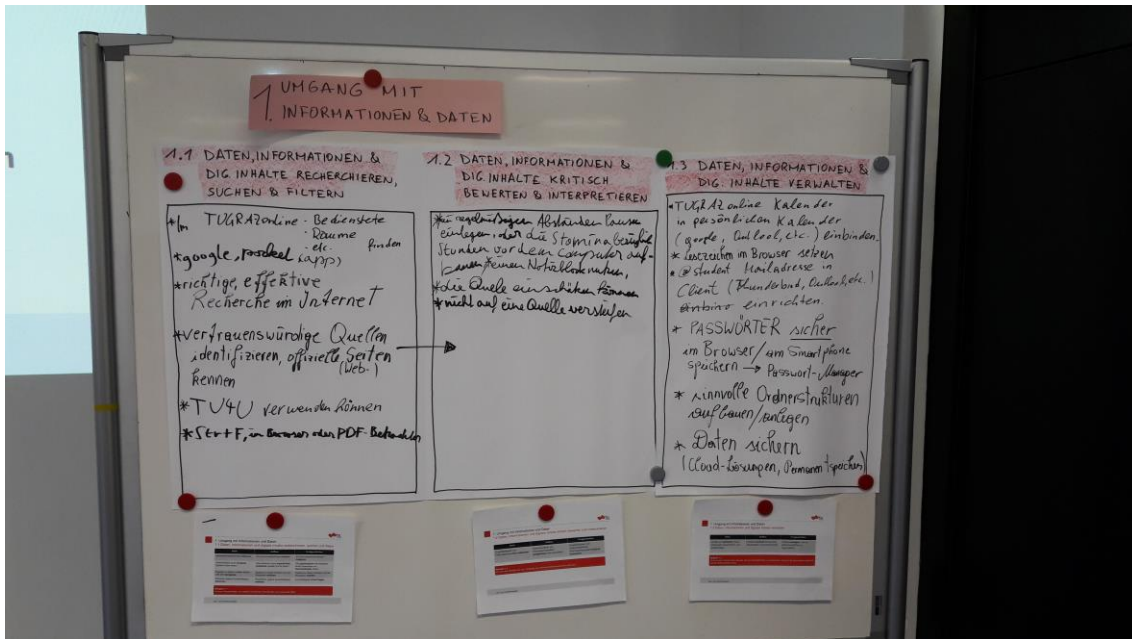 1. UMGANG MIT
INFORMATIONEN & DATEN
1.1 DATEN, INFORMATIONEN &
DIG. INHALTE RECHERCHIEREN,
SUCHEN & FILTERN
* In TUGRAZonline - Bedienstete
- Räume
- etc. finden
* google, (app)
* richtige, effektive
Recherche im Internet
* vertrauenswürdige Quellen
identifizieren, offizielle Seiten
(Web-)
kennen
* TU4U verwenden können
* Str+F, im Browser oder PDF-Betrachter
1.2 DATEN, INFORMATIONEN &
DIG. INHALTE KRITISCH
BEWERTEN & INTERPRETIEREN
* in regelmäßigen Abständen Pausen
einlegen, oder die Stamina bezüglich
Stunden vor dem Computer auf-
bauen * einen Notizblock nutzen,
* die Quelle einschätzen können
* nicht auf eine Quelle versteifen
1.3 DATEN, INFORMATIONEN &
DIG. INHALTE VERWALTEN
* TUGRAZonline Kalender
in persönlichen Kalender
(google, Outlook, etc.) einbinden
* Lesezeichen im Browser setzen
* @student Mailadresse in
Client (Thunderbird, Outlook, etc.)
einrichten.
* PASSWÖRTER sicher
im Browser/am Smartphone
speichern → Passwort-Manager
* sinnvolle Ordnerstrukturen
aufbauen/anlegen
* Daten sichern
(Cloud-Lösungen, Permanentspeicher)